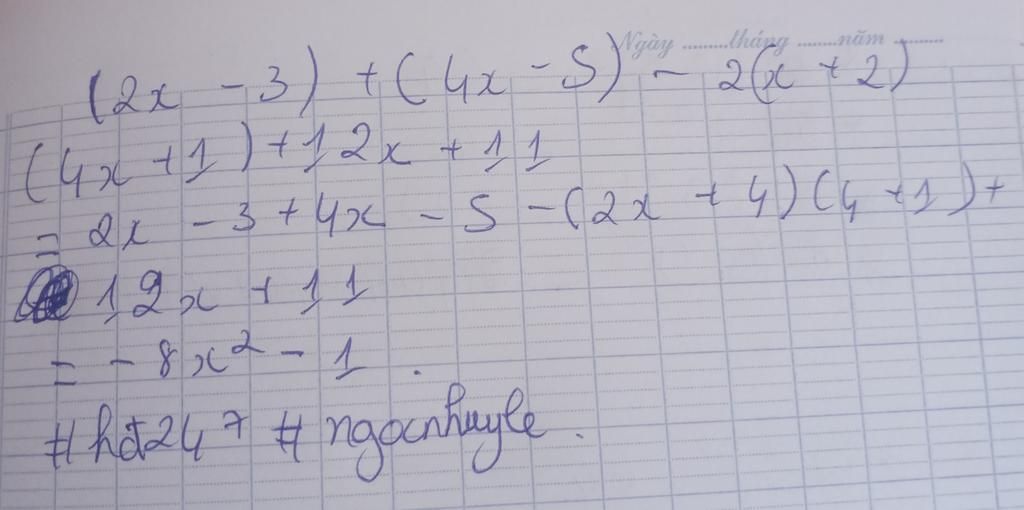 Ngày ........tháng .......năm .........
(2x - 3) + (4x - 5) - 2(x + 2)
(4x + 1) + 12x + 11
= 2x - 3 + 4x - 5 - (2x + 4)(4 + 1) +
12x + 11
= - 8x² - 1.
#hđ247 #ngocnhuyle.